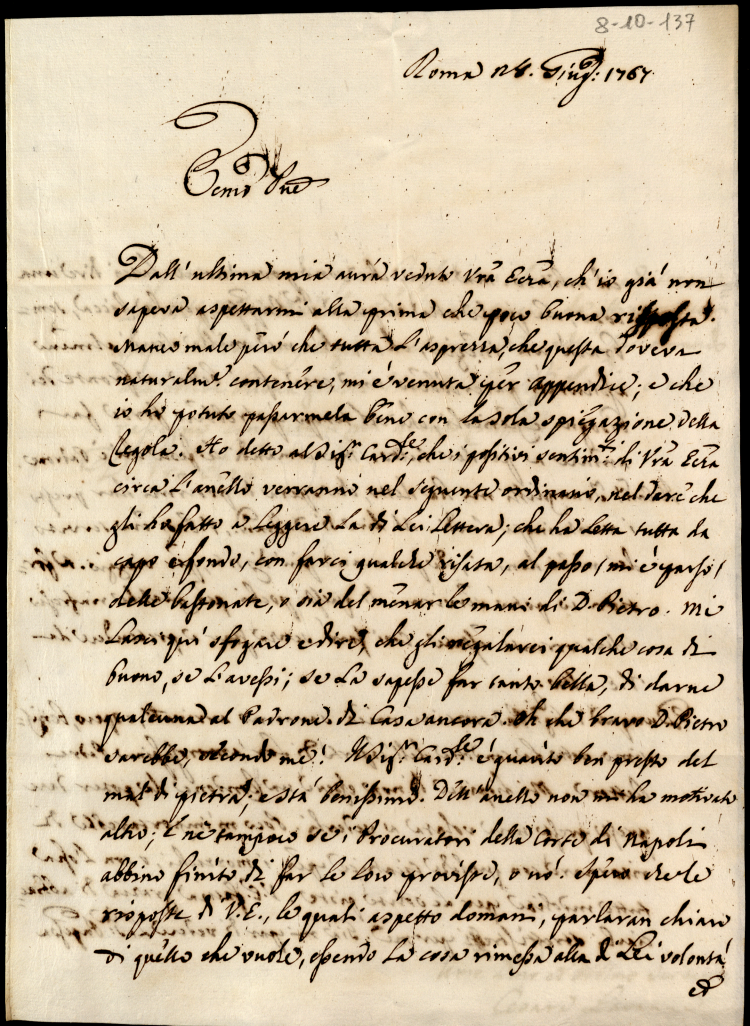 8-10-137
Roma 28. Giug: 1767
Ecmo Pne
Dall' ultima mia aurà veduto Vrã Ecrã, ch'io già non
sapeva aspettarmi alla prima che poco buona risposta.
Manco male però che tutta l'asprezza, che questa doveva
naturalm.e contenére, mi è venuta per appendice; e che
io hò potuto passarmela bene con la sola spiegazione della
Regola. Ho detto al Sig.r Card.le, che i positivi sentim.ti di Vrã Ecrã
circa l'anello verranno nel seguente ordinario, nel dare che
gli hò fatto a leggere la di Lei Lettera; che ha letta tutta da
capo e fondo, con farci qualche risata, al passo (mi è parso)
delle bastonate, o sia del menar le mani di D. Pietro. Mi
lasci quì sfogare e dire, che gli regalarei qualche cosa di
buono, se l'avessi; se la sapesse far tanto bella, di darne
qualcuna al Padrone di Casa ancora. Oh che bravo D. Pietro
sarebbe, secondo mè! Il Sig.r Card.le è guarito ben presto del
mal di pietra, e stà benissimo. Dell'anello non mi ha motivato
altro; e nè tampoco se i Procuratori della Corte di Napoli
abbino finito di far le loro proviste, o nò. Spero che le
risposte di V.E., le quali aspetto domani, parlaran chiaro
di quello che vuole, essendo la cosa rimessa alla di Lei volontà
ed